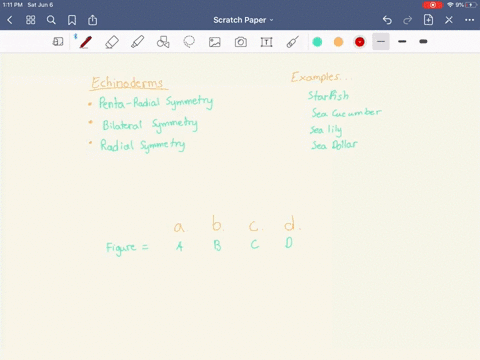 1:11 PM Sat Jun 6
9%
Scratch Paper
Echinoderms
Penta-Radial Symmetry
Bilateral Symmetry
Radial Symmetry
Examples...
Starfish
Sea Cucumber
Sea lily
Sea Dollar
a. b. c. d.
Figure = A B C D